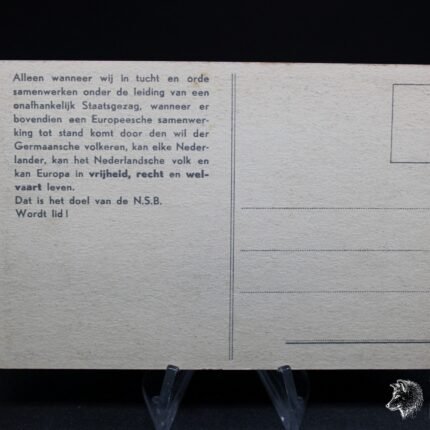 Alleen wanneer wij in tucht en orde
samenwerken onder de leiding van een
onafhankelijk Staatsgezag, wanneer er
bovendien een Europeesche samenwer-
king tot stand komt door den wil der
Germaansche volkeren, kan elke Neder-
lander, kan het Nederlandsche volk en
kan Europa in vrijheid, recht en wel-
vaart leven.
Dat is het doel van de N.S.B.
Wordt lid!